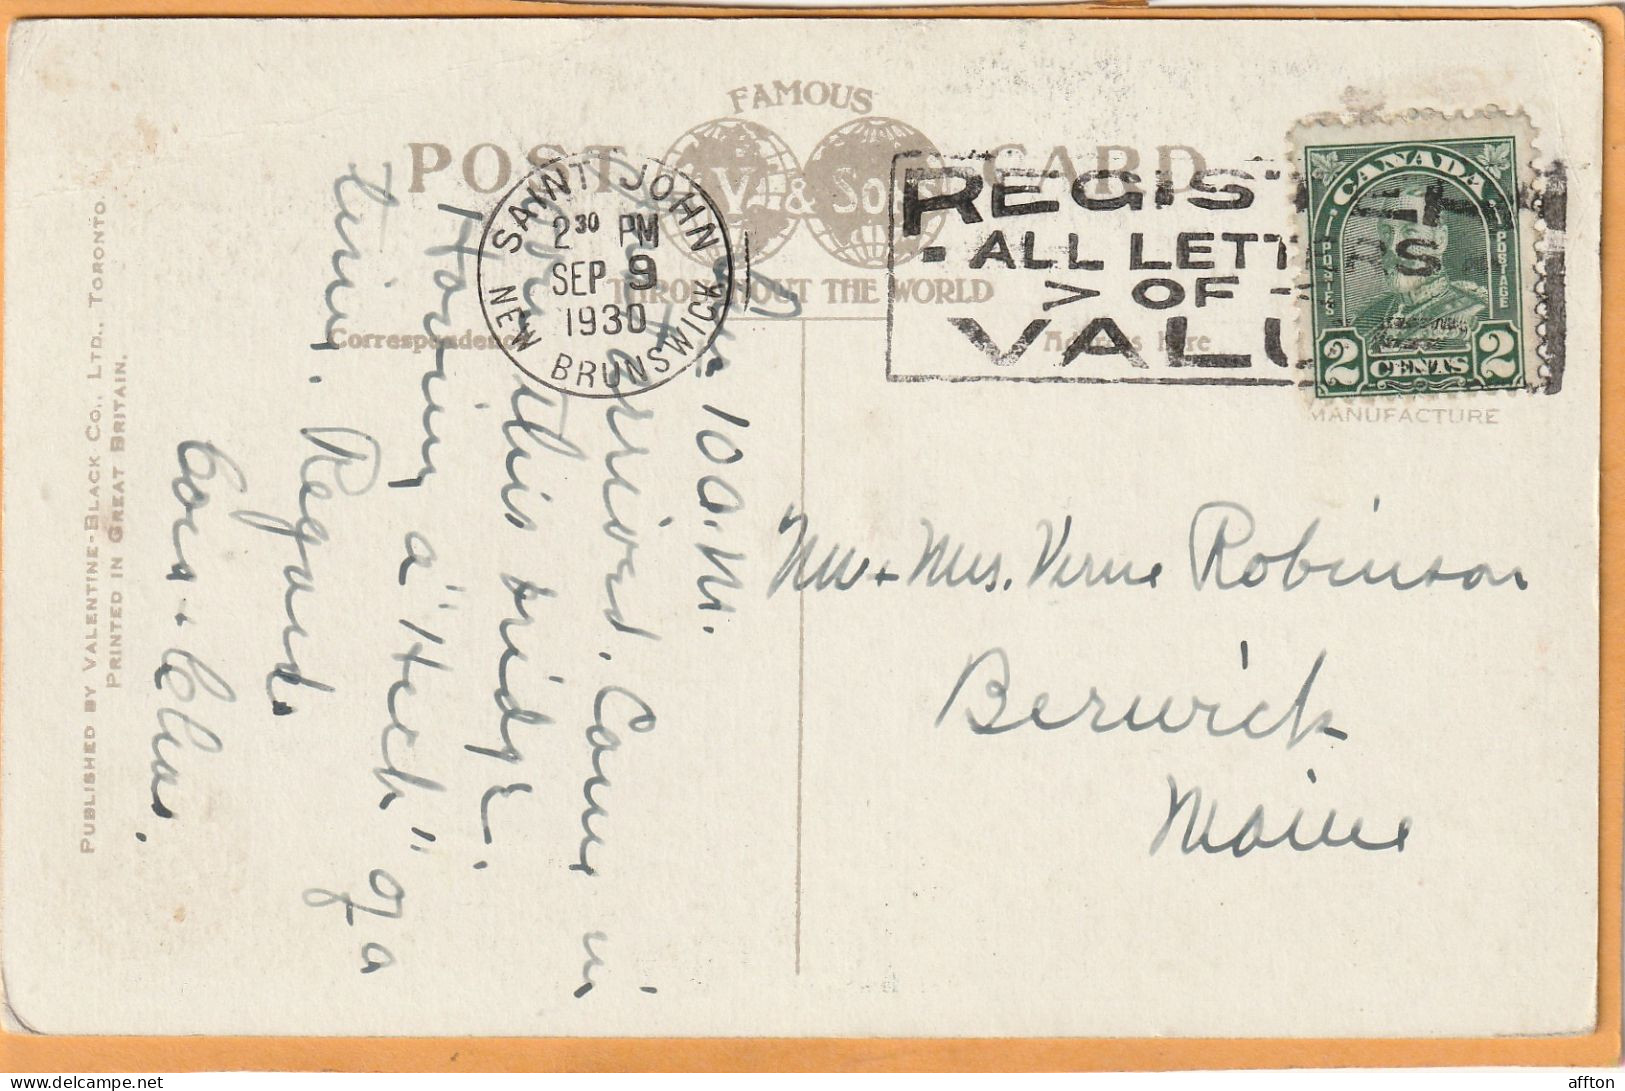 FAMOUS
POST CARD
V. & Sons
THROUGHOUT THE WORLD
Correspondence
Address Here
SAINT JOHN
2 30 PM
SEP 9
1930
NEW BRUNSWICK
REGISTER
ALL LETTERS
OF
VALU
CANADA
POSTES
POSTAGE
2 CENTS 2
MANUFACTURE
10 a.m.
arrived. Came in
this bridge.
Having a "Heck" of a
time. Regards
Cora + Chas.
Mr + Mrs. Verne Robinson
Berwick
Maine
PUBLISHED BY VALENTINE-BLACK CO., LTD., TORONTO.
PRINTED IN GREAT BRITAIN.
affton